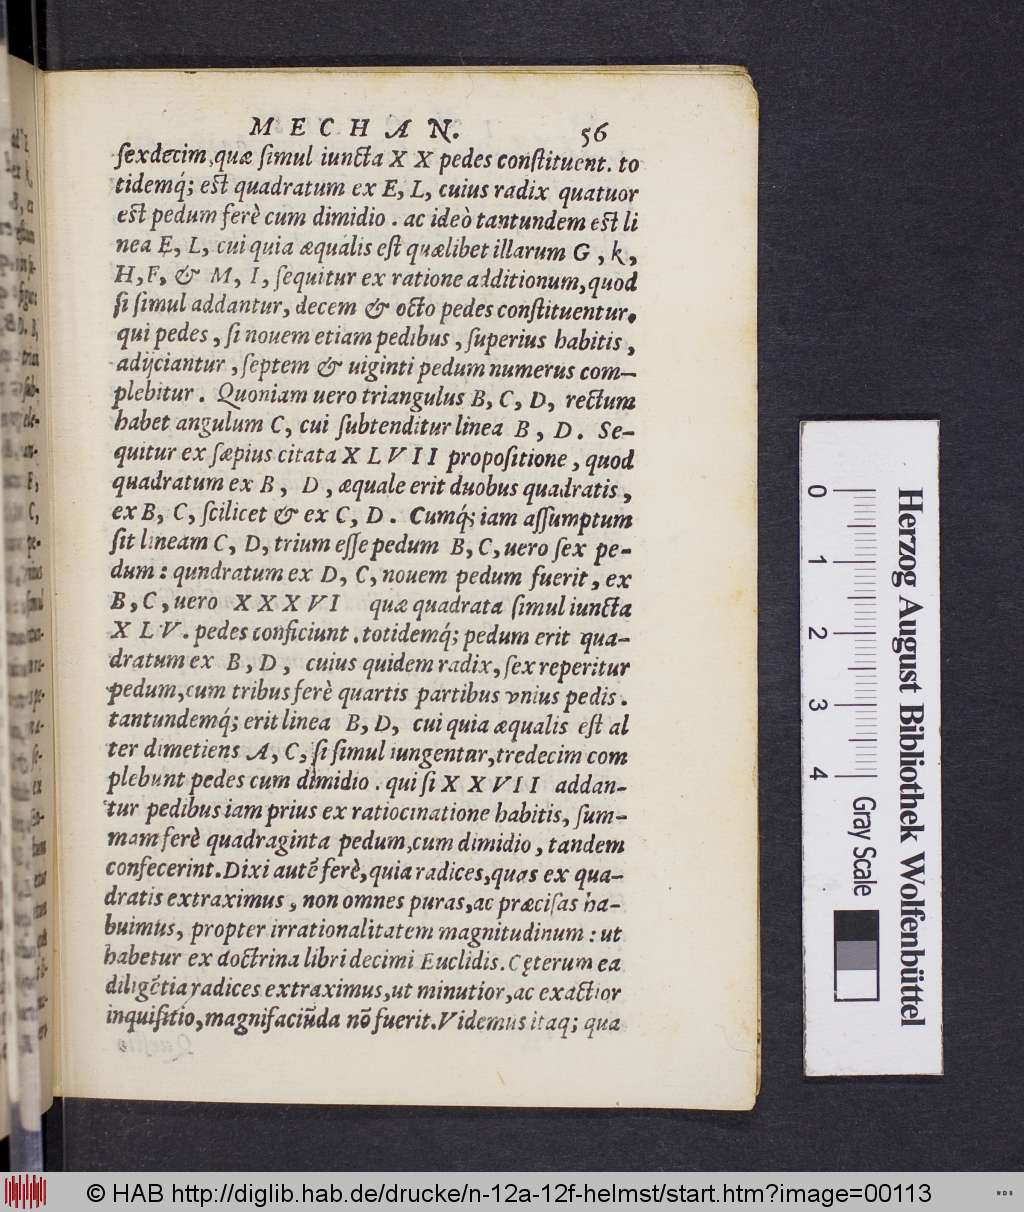 MECHAN. 56
sexdecim, quæ simul iuncta XX pedes constituent. to
tidemq́; est quadratum ex E, L, cuius radix quatuor
est pedum ferè cum dimidio. ac ideò tantundem est li
nea E, L, cui quia æqualis est quælibet illarum G, k,
H, F, & M, I, sequitur ex ratione additionum, quod
si simul addantur, decem & octo pedes constituentur.
qui pedes, si nouem etiam pedibus, superius habitis,
adijciantur, septem & uiginti pedum numerus com–
plebitur. Quoniam uero triangulus B, C, D, rectum
habet angulum C, cui subtenditur linea B, D. Se–
quitur ex sæpius citata XLVII propositione, quod
quadratum ex B, D, æquale erit duobus quadratis,
ex B, C, scilicet & ex C, D. Cumq́; iam assumptum
sit lineam C, D, trium esse pedum B, C, uero sex pe–
dum: qundratum ex D, C, nouem pedum fuerit, ex
B, C, uero XXXVI quæ quadrata simul iuncta
XLV. pedes conficiunt. totidemq́; pedum erit qua–
dratum ex B, D, cuius quidem radix, sex reperitur
pedum, cum tribus ferè quartis partibus vnius pedis.
tantundemq́; erit linea B, D, cui quia æqualis est al
ter dimetiens A, C, si simul iungentur, tredecim com
plebunt pedes cum dimidio. qui si XXVII addan–
tur pedibus iam prius ex ratiocinatione habitis, sum–
mam ferè quadraginta pedum, cum dimidio, tandem
confecerint. Dixi autē ferè, quia radices, quas ex qua–
dratis extraximus, non omnes puras, ac præcisas ha–
buimus, propter irrationalitatem magnitudinum: ut
habetur ex doctrina libri decimi Euclidis. Cęterum ea
diligētia radices extraximus, ut minutior, ac exactior
inquisitio, magnifaciūda nō fuerit. Videmus itaq; qua
0 1 2 3 4
Gray Scale
Herzog August Bibliothek Wolfenbüttel
© HAB http://diglib.hab.de/drucke/n-12a-12f-helmst/start.htm?image=00113